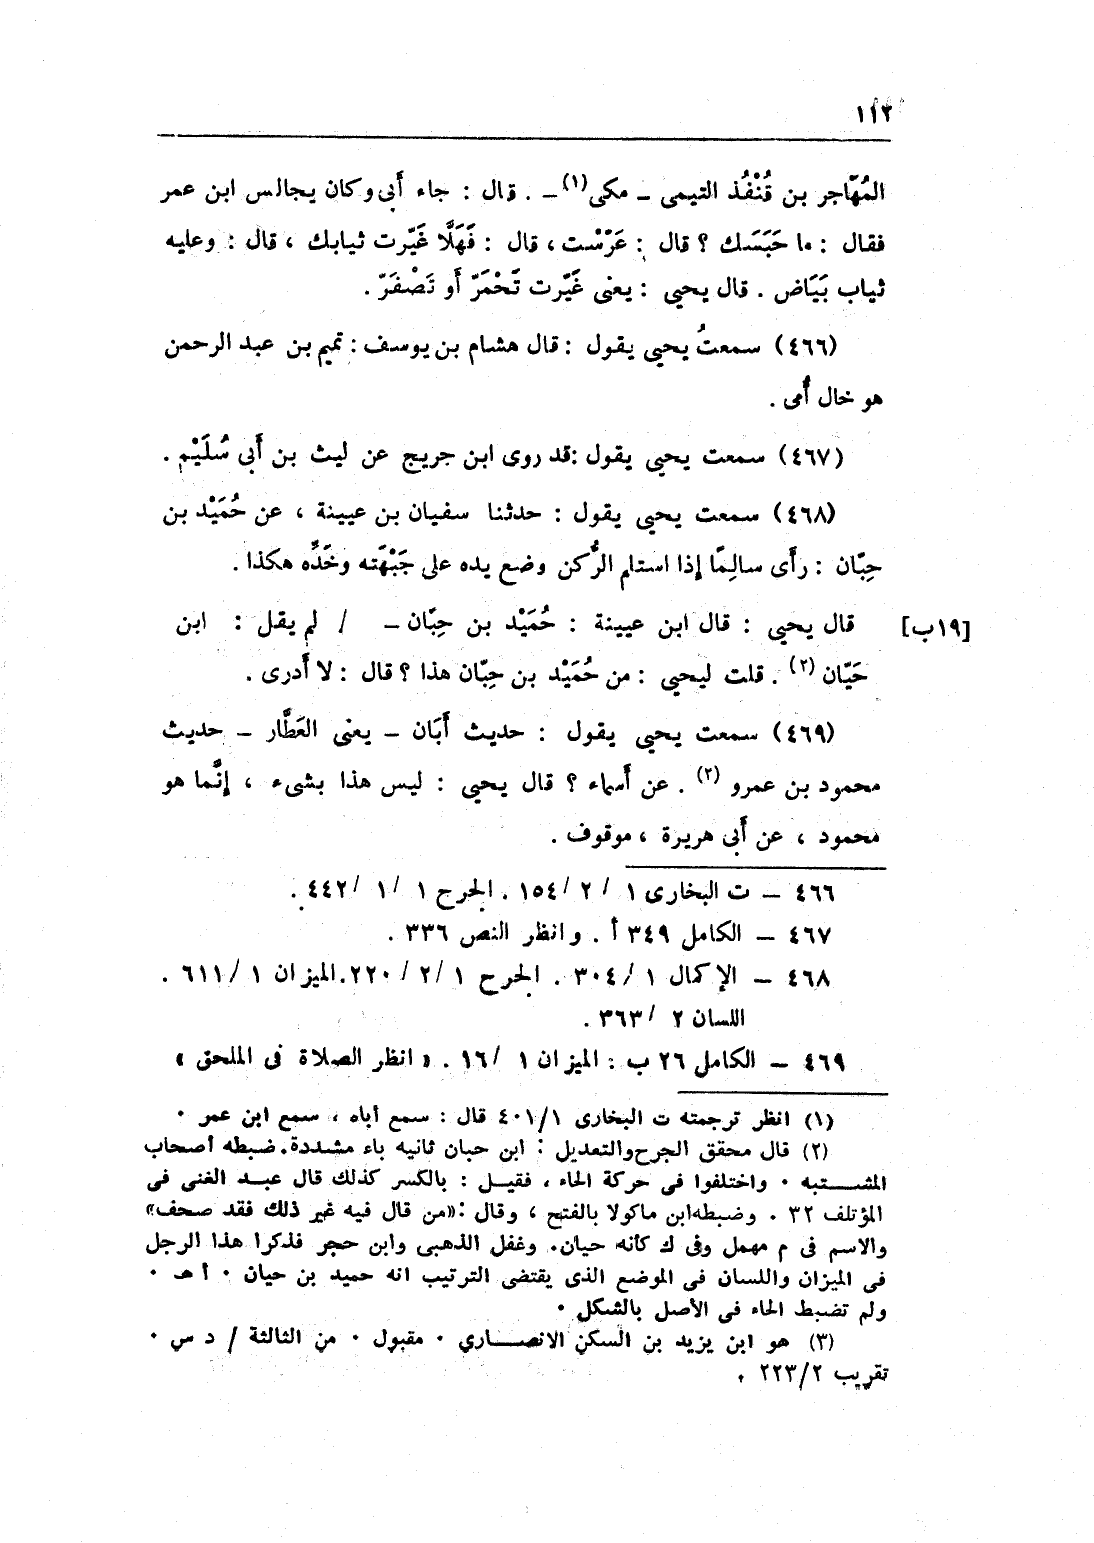 ١١٣
المُهَاجر بن قُنْفُذ التيمى – مكى(١) – . قال : جاء أَبى وكان يجالس ابن عمر
فقال : ما حَبَسَك ؟ قال : عَرّسْت ، قال : فَهَلَّا غَيّرت ثيابك ، قال : وعليه
ثياب بَيَاض . قال يحيى : يعنى غَيّرت تَحْمَرّ أَو تَصْفَرّ .
(٤٦٦) سمعتُ يحيى يقول : قال هشام بن يوسف : تميم بن عبد الرحمن
هو خال أُمى .
(٤٦٧) سمعت يحيى يقول :قد روى ابن جريج عن ليث بن أَبى سُلَيْم .
(٤٦٨) سمعت يحيى يقول : حدثنا سفيان بن عيينة ، عن حُمَيْد بن
حِبّان : رأَى سالِمًا إذا استلم الرُّكن وضع يده على جَبْهَته وخَدِّه هكذا .
[١٩ب] قال يحيى : قال ابن عيينة : حُمَيْد بن حِبّان – / لم يقل : ابن
حَيّان (٢) . قلت ليحيى : من حُمَيْد بن حِبّان هذا ؟ قال : لا أَدرى .
(٤٦٩) سمعت يحيى يقول : حديث أَبَان – يعنى العَطَّار – حديث
محمود بن عمرو (٣) . عن أَسماء ؟ قال يحيى : ليس هذا بشىء ، إنَّما هو
محمود ، عن أَبى هريرة ، موقوف .
٤٦٦ – ت البخارى ١ / ٢ /١٥٤ . الجرح ١ /١ /٤٤٢ .
٤٦٧ – الكامل ٣٤٩ أ . وانظر النص ٣٣٦ .
٤٦٨ – الإكمال ١ /٣٠٤ . الجرح ١ /٢ /٢٢٠.الميزان ١ /٦١١ .
اللسان ٢ /٣٦٣ .
٤٦٩ – الكامل ٢٦ ب : الميزان ١ /١٦ . « انظر الصلاة فى الملحق »
(١) انظر ترجمته ت البخارى ٤٠١/١ قال : سمع أباه ، سمع ابن عمر .
(٢) قال محقق الجرح والتعديل : ابن حبان ثانيه باء مشددة. ضبطه أصحاب
المشتبه . واختلفوا فى حركة الحاء ، فقيل : بالكسر كذلك قال عبد الغنى فى
المؤتلف ٣٢ . وضبطه ابن ماكولا بالفتح ، وقال :«من قال فيه غير ذلك فقد صحف»
والاسم فى م مهمل وفى ك كأنه حيان. وغفل الذهبى وابن حجر فذكرا هذا الرجل
فى الميزان واللسان فى الموضع الذى يقتضى الترتيب انه حميد بن حيان . أ هـ .
ولم تضبط الحاء فى الأصل بالشكل .
(٣) هو ابن يزيد بن السكن الانصارى . مقبول . من الثالثة / د س .
تقريب ٢٢٣/٢ .